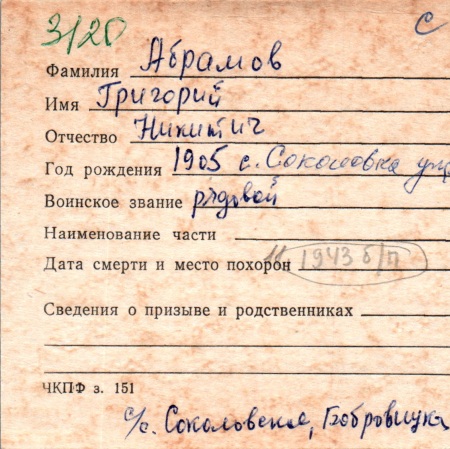 3/20 С
Фамилия Абрамов
Имя Григорий
Отчество Никитич
Год рождения 1905 с. Соколовка
Воинское звание рядовой
Наименование части
Дата смерти и место похорон 11. 1943 б/п
Сведения о призыве и родственниках
ЧКПФ з. 151
с/с. Соколовская,